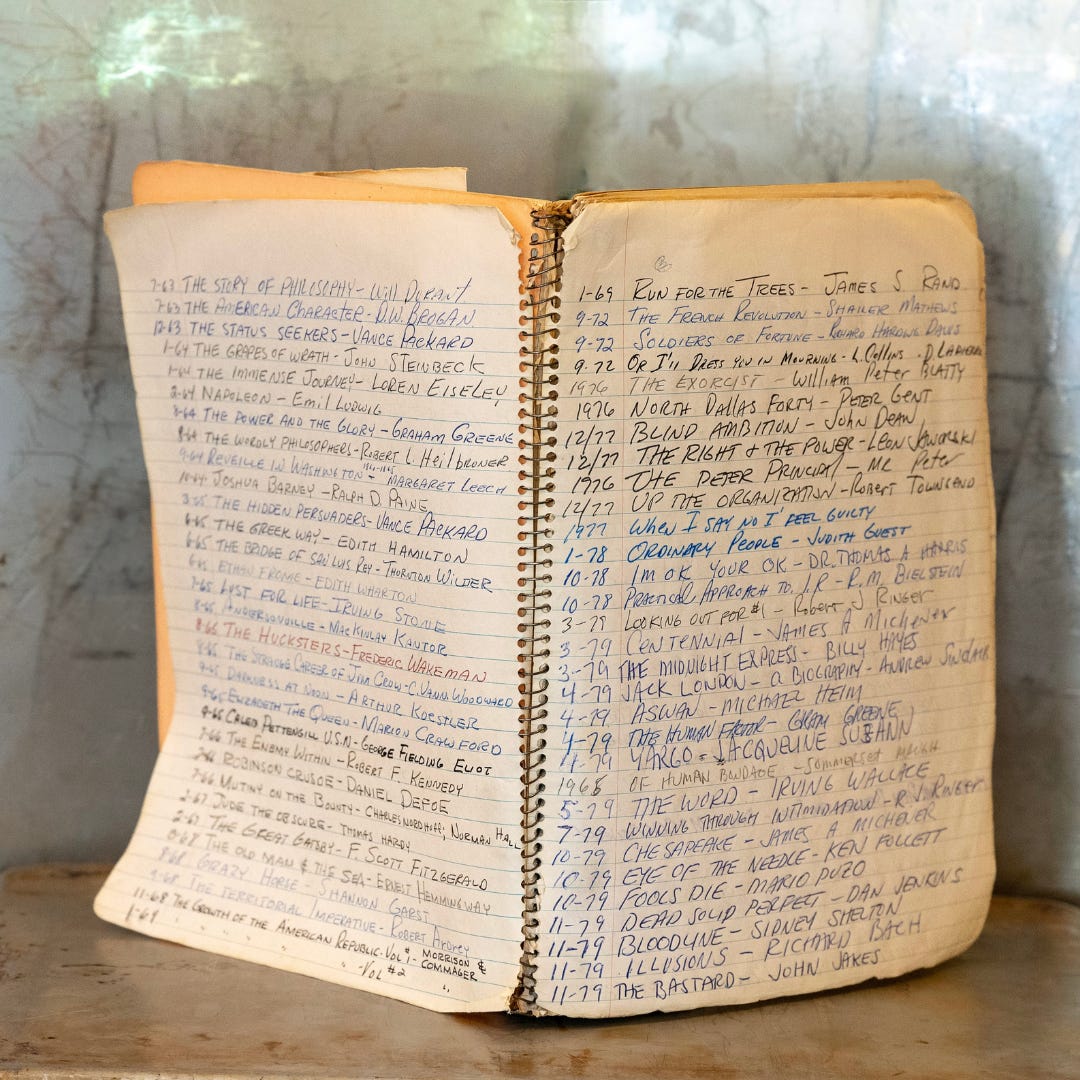 7-63 THE STORY OF PHILOSOPHY - Will DURANT
7-63 THE AMERICAN CHARACTER - D.W. BROGAN
12-63 THE STATUS SEEKERS - VANCE PACKARD
1-64 THE GRAPES OF WRATH - JOHN STEINBECK
1-64 THE IMMENSE JOURNEY - LOREN EISELEY
2-64 NAPOLEON - Emil LUDWIG
8-64 THE POWER AND THE GLORY - GRAHAM GREENE
8-64 THE WORDLY PHILOSOPHERS - ROBERT L. HeilbRONER
9-64 REVEILLE IN WASHINGTON - MARGARET LEECH
10-64 JOSHUA BARNEY - RALPH D. PAINE
3-65 THE HIDDEN PERSUADERS - VANCE PACKARD
6-65 THE GREEK WAY - EDITH HAMILTON
6-65 THE BRIDGE OF SAN LUIS REY - THORNTON WILDER
6-65 ETHAN FROME - EDITH WHARTON
7-65 LUST FOR LIFE - IRVING STONE
8-65 ANDERSONVILLE - MACKINLAY KANTOR
8-65 THE HUCKSTERS - FREDERIC WAKEMAN
8-65 THE STRANGE CAREER OF JIM CROW - C. VANN WOODWARD
9-65 DARKNESS AT NOON - ARTHUR KOESTLER
9-65 ELIZABETH THE QUEEN - MARION CRAWFORD
9-65 CALEB PETTENGILL U.S.N. - GEORGE FIELDING ELIOT
7-66 THE ENEMY WITHIN - ROBERT F. KENNEDY
ROBINSON CRUSOE - DANIEL DEFOE
7-66 MUTINY ON THE BOUNTY - CHARLES NORDHOFF; NORMAN HALL
2-67 JUDE THE OBSCURE - THOMAS HARDY
2-67 THE GREAT GATSBY - F. SCOTT FITZGERALD
THE OLD MAN & THE SEA - ERNEST HEMMINGWAY
CRAZY HORSE - SHANNON GARST
THE TERRITORIAL IMPERATIVE - ROBERT Ardrey
11-68 THE GROWTH OF THE AMERICAN REPUBLIC - VOL #1 - MORRISON & COMMAGER
1-69 " " " " - VOL #2 "
1-69 RUN FOR THE TREES - JAMES S. RAND
9-72 THE FRENCH REVOLUTION - SHAILER MATHEWS
9-72 SOLDIERS OF FORTUNE - RICHARD HARDING DAVIS
9-72 OR I'll DRESS YOU IN MOURNING - L. COLLINS . D. LAPIERRE
1976 THE EXORCIST - William Peter BLATTY
1976 NORTH DALLAS FORTY - PETER GENT
12/77 BLIND AMBITION - JOHN DEAN
12/77 THE RIGHT & THE POWER - LEON JAWORSKI
1976 THE PETER PRINCIPAL - MR Peter
12/77 UP THE ORGANIZATION - ROBERT TOWNSEND
1977 WHEN I SAY NO I FEEL GUILTY
1-78 ORDINARY PEOPLE - JUDITH GUEST
10-78 IM OK YOUR OK - DR. THOMAS A HARRIS
10-78 PRACTICAL APPROACH TO J.R - R.M. BIELSTEIN
3-79 LOOKING OUT FOR #1 - ROBERT J RINGER
3-79 CENTENNIAL - JAMES A MICHENER
3-79 THE MIDNIGHT EXPRESS - BILLY HAYES
4-79 JACK LONDON - a BIOGRAPHY - ANDREW SINCLAIR
4-79 ASWAN - MICHAEL HEIM
4-79 THE HUMAN FACTOR - GRAHAM GREENE
4-79 YARGO - JACQUELINE SUSANN
1965 OF HUMAN BONDAGE - SOMMERSET MAUGH
5-79 THE WORD - IRVING WALLACE
7-79 WINNING THROUGH INTIMIDATION - R.J. RINGER
10-79 CHESAPEAKE - JAMES A MICHENER
10-79 EYE OF THE NEEDLE - KEN FOLLETT
10-79 FOOLS DIE - MARIO PUZO
11-79 DEAD SOLID PERFECT - DAN JENKINS
11-79 BLOODLINE - SIDNEY SHELTON
11-79 ILLUSIONS - RICHARD BACH
11-79 THE BASTARD - JOHN JAKES